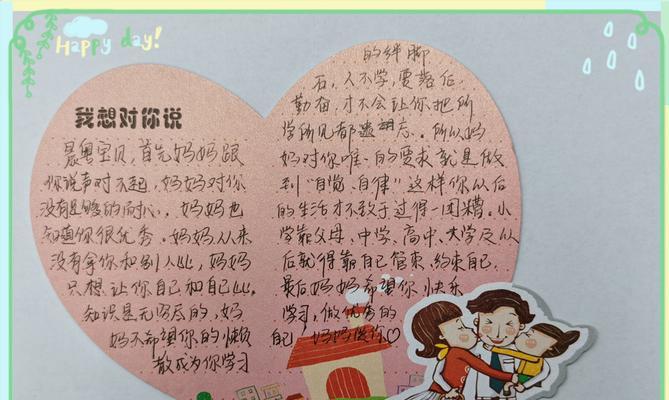 Happy day!
我想对你说
晨粤宝贝，首先妈妈跟
你说声对不起，妈妈对你
没有足够的耐心，妈妈也
知道你很优秀。妈妈从来
没有拿你和别人比，妈妈
只想让你自己和自己比。
知识是无穷尽的，妈
妈不希望你的懒
散成为你学习
的绊脚
石，人不学，要落后，
勤奋，才不会让你把所
学所见都遗忘。所以妈
妈对你唯一的要求就是做
到“自觉、自律”这样你以后
的生活才不致于过得一团糟。小
学靠父母、中学、高中、大学及以
后就得靠自己管束、约束自己
最后妈妈希望你快乐
学习，做优秀的
自己，妈妈爱你